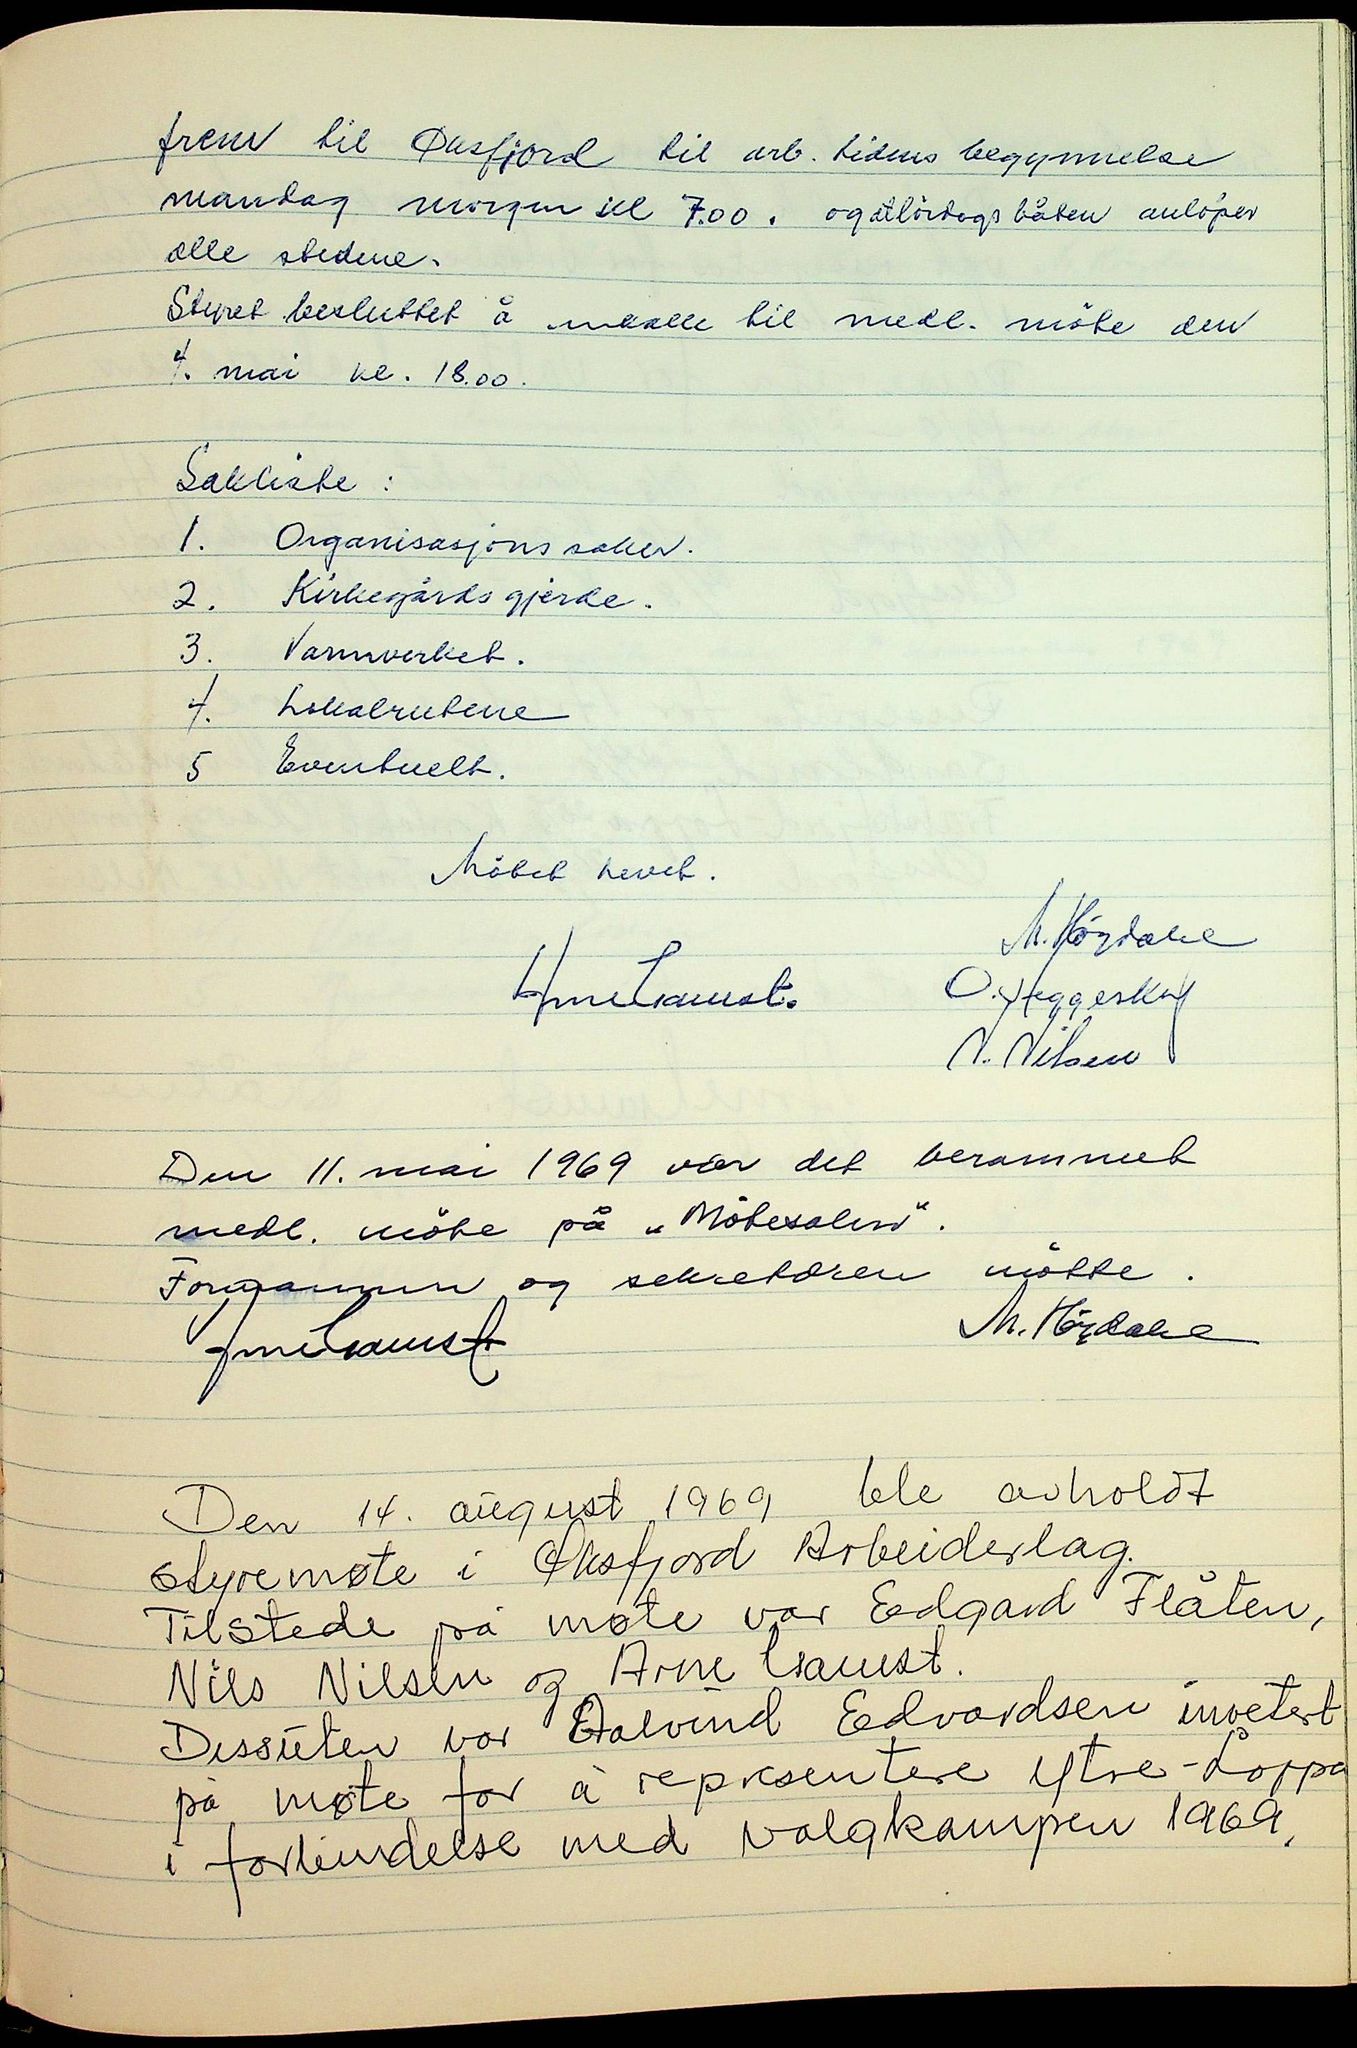 frem til Øksfjord til arb. tidens begynnelse
mandag morgen kl 7.00. og at lördogsbåten anlöper
alle stedene.
Styret besluttet å innkalle til medl. möte den
4. mai kl. 18.00.
Sakliste :
1. Organisasjonssaker.
2. Kirkegårdsgjerde.
3. Vannverket.
4. Lokalrutene
5 Eventuelt.
Mötet hevet.
M. Högdahl
Arne Gamst. O. Heggeskog
N. Nilsen
Den 11. mai 1969 var det berammet
medl. möte på „Mötesalen".
Formannen og sekretæren mötte.
Arne Gamst M. Högdahl
Den 14. august 1969 ble avholdt
styremøte i Øksfjord Arbeiderlag.
Tilstede på møte var Edgard Flåten,
Nils Nilsen og Arne Gamst.
Dessuten var Edvardsen invetert
på møte for å representere ytre-Loppa
i forbindelse med valgkampen 1969.